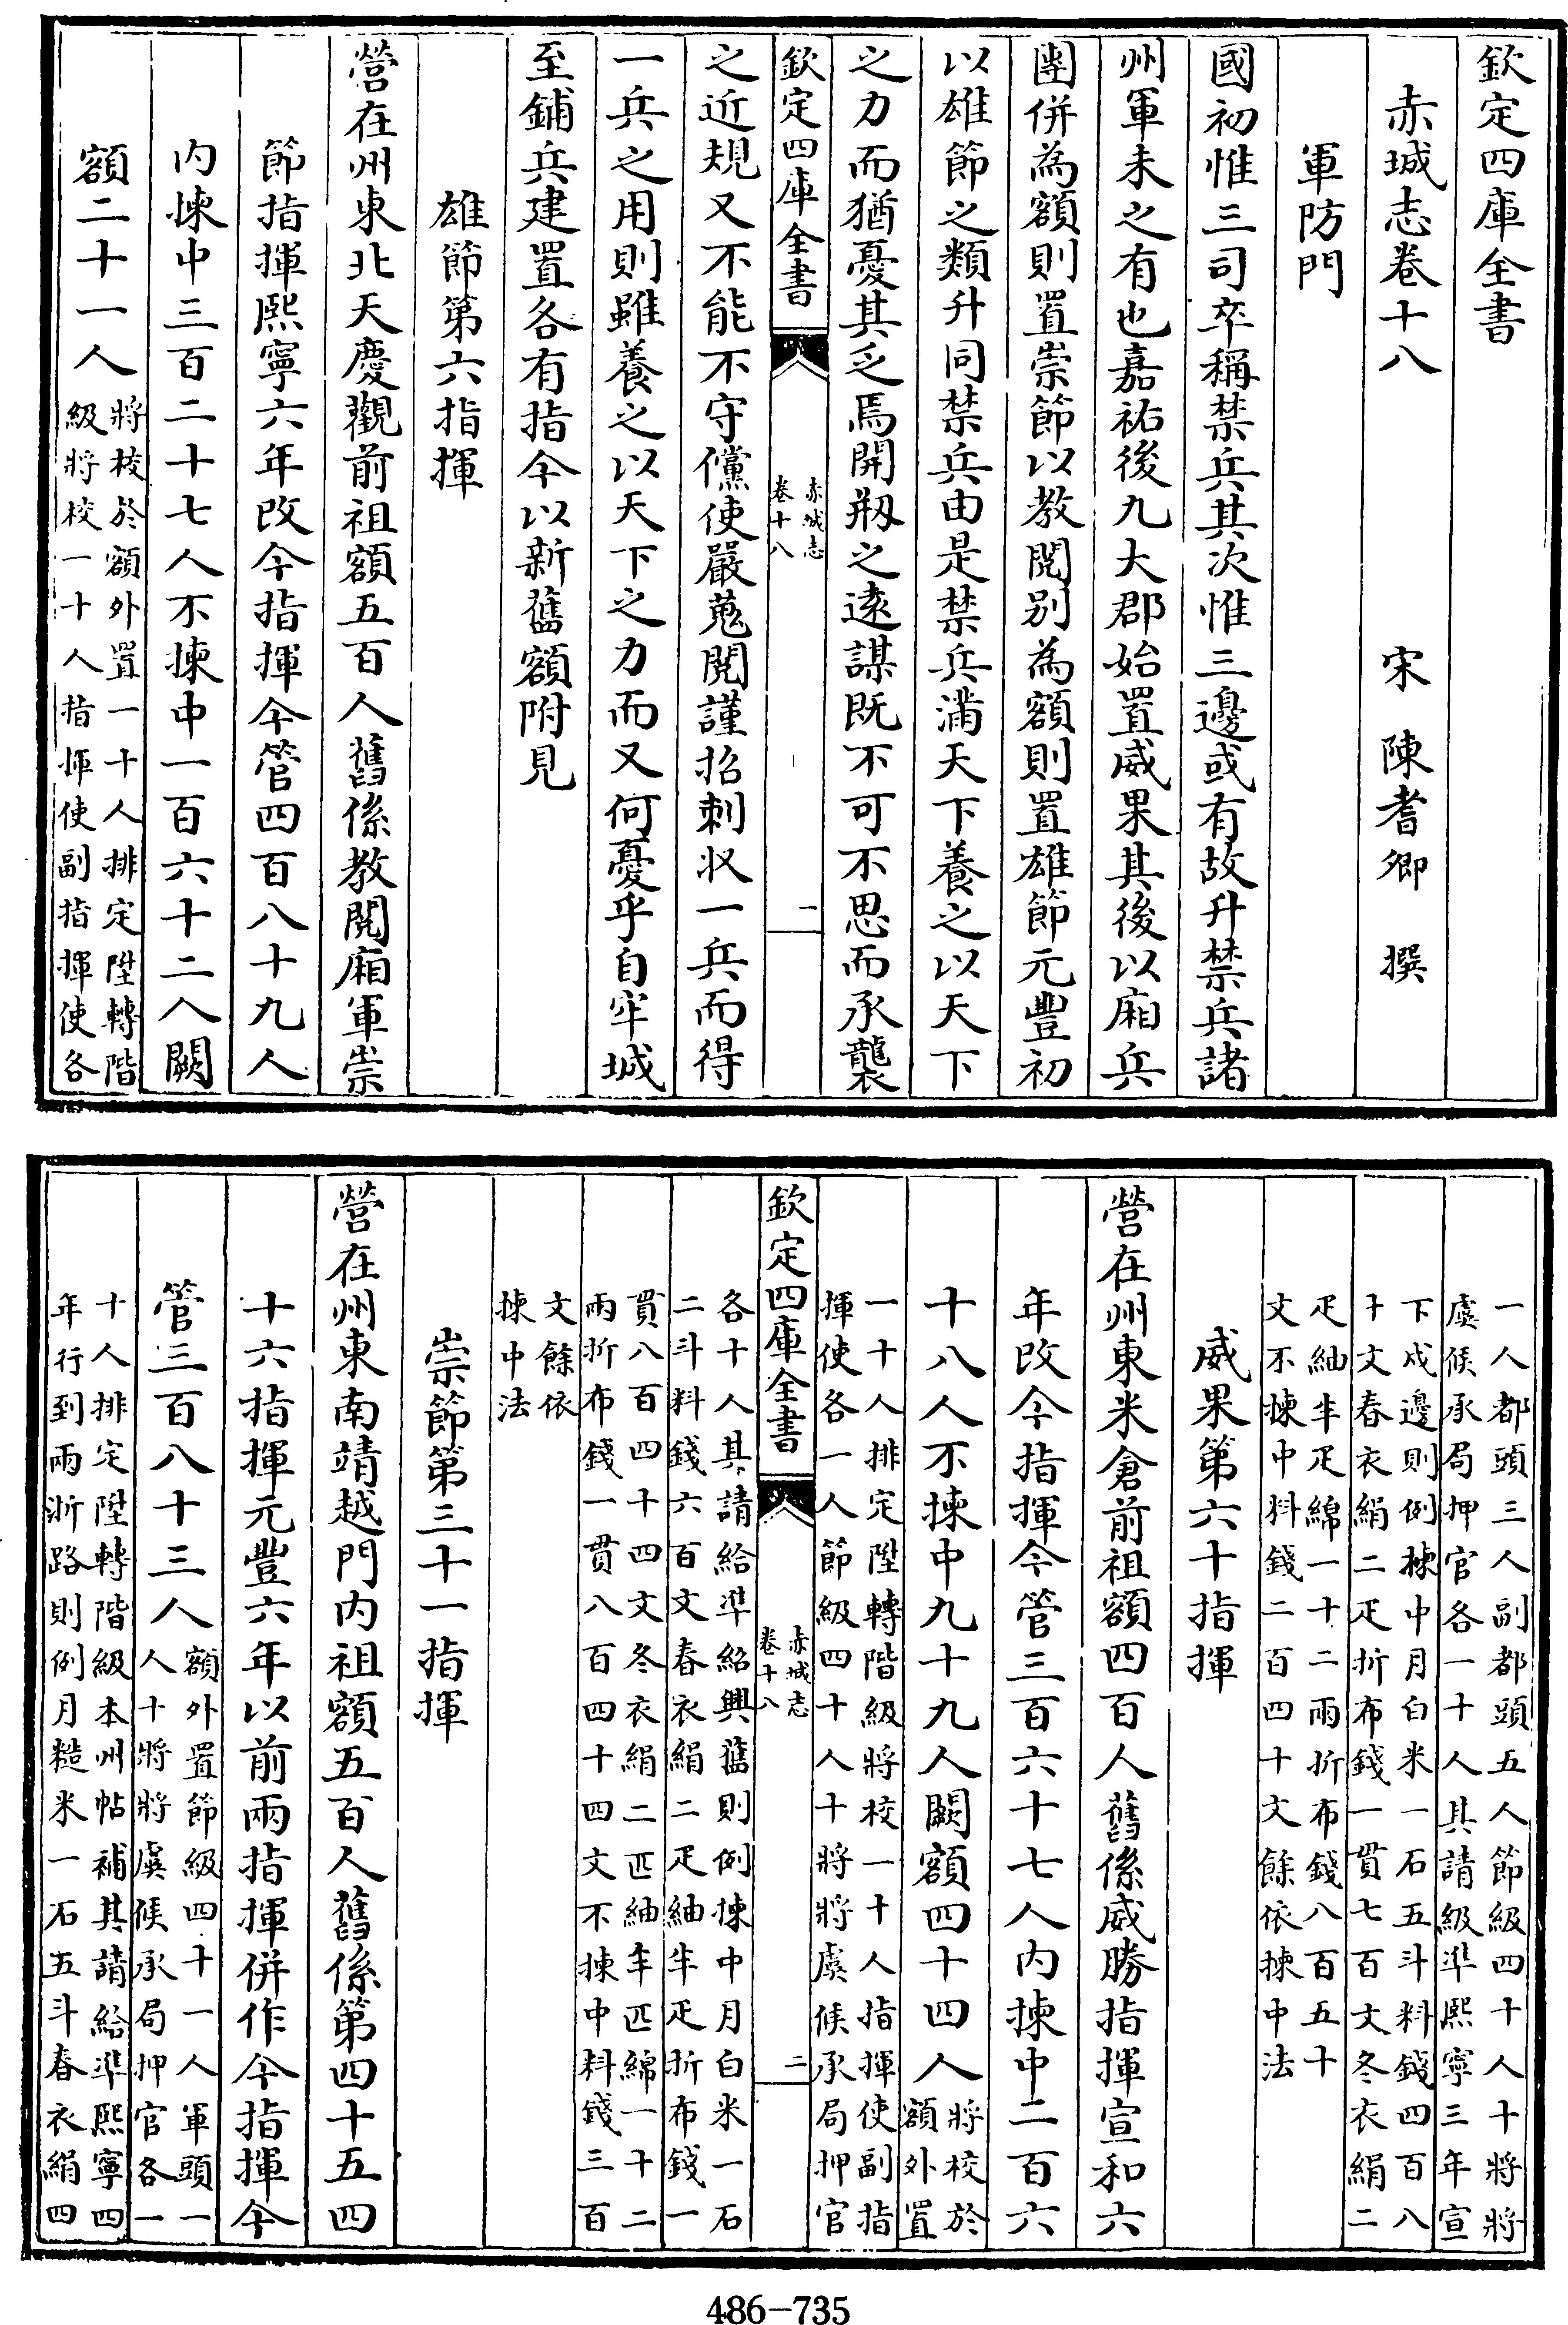 欽定四庫全書
赤城志卷十八
宋 陳耆卿 撰
軍防門
國初惟三司卒稱禁兵其次惟三邊或有故升禁兵諸
州軍未之有也嘉祐後九大郡始置威果其後以廂兵
團併為額則置崇節以教閱别為額則置雄節元豐初
以雄節之類升同禁兵由是禁兵滿天下養之以天下
之力而猶憂其乏焉開剏之逺謀既不可不思而承襲
欽定四庫全書
赤城志
卷十八
一
之近規又不能不守儻使嚴蒐閱謹招刺收一兵而得
一兵之用則雖養之以天下之力而又何憂乎自牢城
至鋪兵建置各有指今以新舊額附見
雄節第六指揮
營在州東北天慶觀前祖額五百人舊係教閱廂軍崇
節指揮熙寧六年改今指揮今管四百八十九人
内揀中三百二十七人不揀中一百六十二人闕
額二十一人
將校於額外置一十人排定陞轉階
級將校一十人指揮使副指揮使各
一人都頭三人副都頭五人節級四十人十將將
虞候承局押官各一十人其請級準熙寧三年宣
下戍邊則例揀中月白米一石五斗料錢四百八
十文春衣絹二疋折布錢一貫七百文冬衣絹二
疋紬半疋綿一十二兩折布錢八百五十
文不揀中料錢二百四十文餘依揀中法
威果第六十指揮
營在州東米倉前祖額四百人舊係威勝指揮宣和六
年改今指揮今管三百六十七人内揀中二百六
十八人不揀中九十九人闕額四十四人
將校於
額外置
一十人排定陞轉階級將校一十人指揮使副指
揮使各一人節級四十人十將將虞候承局押官
欽定四庫全書
赤城志
卷十八
二
各十人其請給準紹興舊則例揀中月白米一石
二斗料錢六百文春衣絹二疋紬半疋折布錢一
貫八百四十四文冬衣絹二匹紬半匹綿一十二
兩折布錢一貫八百四十四文不揀中料錢三百
文餘依
揀中法
崇節第三十一指揮
營在州東南靖越門内祖額五百人舊係第四十五四
十六指揮元豐六年以前兩指揮併作今指揮今
管三百八十三人
額外置節級四十一人軍頭一
人十將將虞候承局押官各一
十人排定陞轉階級本州帖補其請給準熙寧四
年行到兩浙路則例月糙米一石五斗春衣絹四
486-735